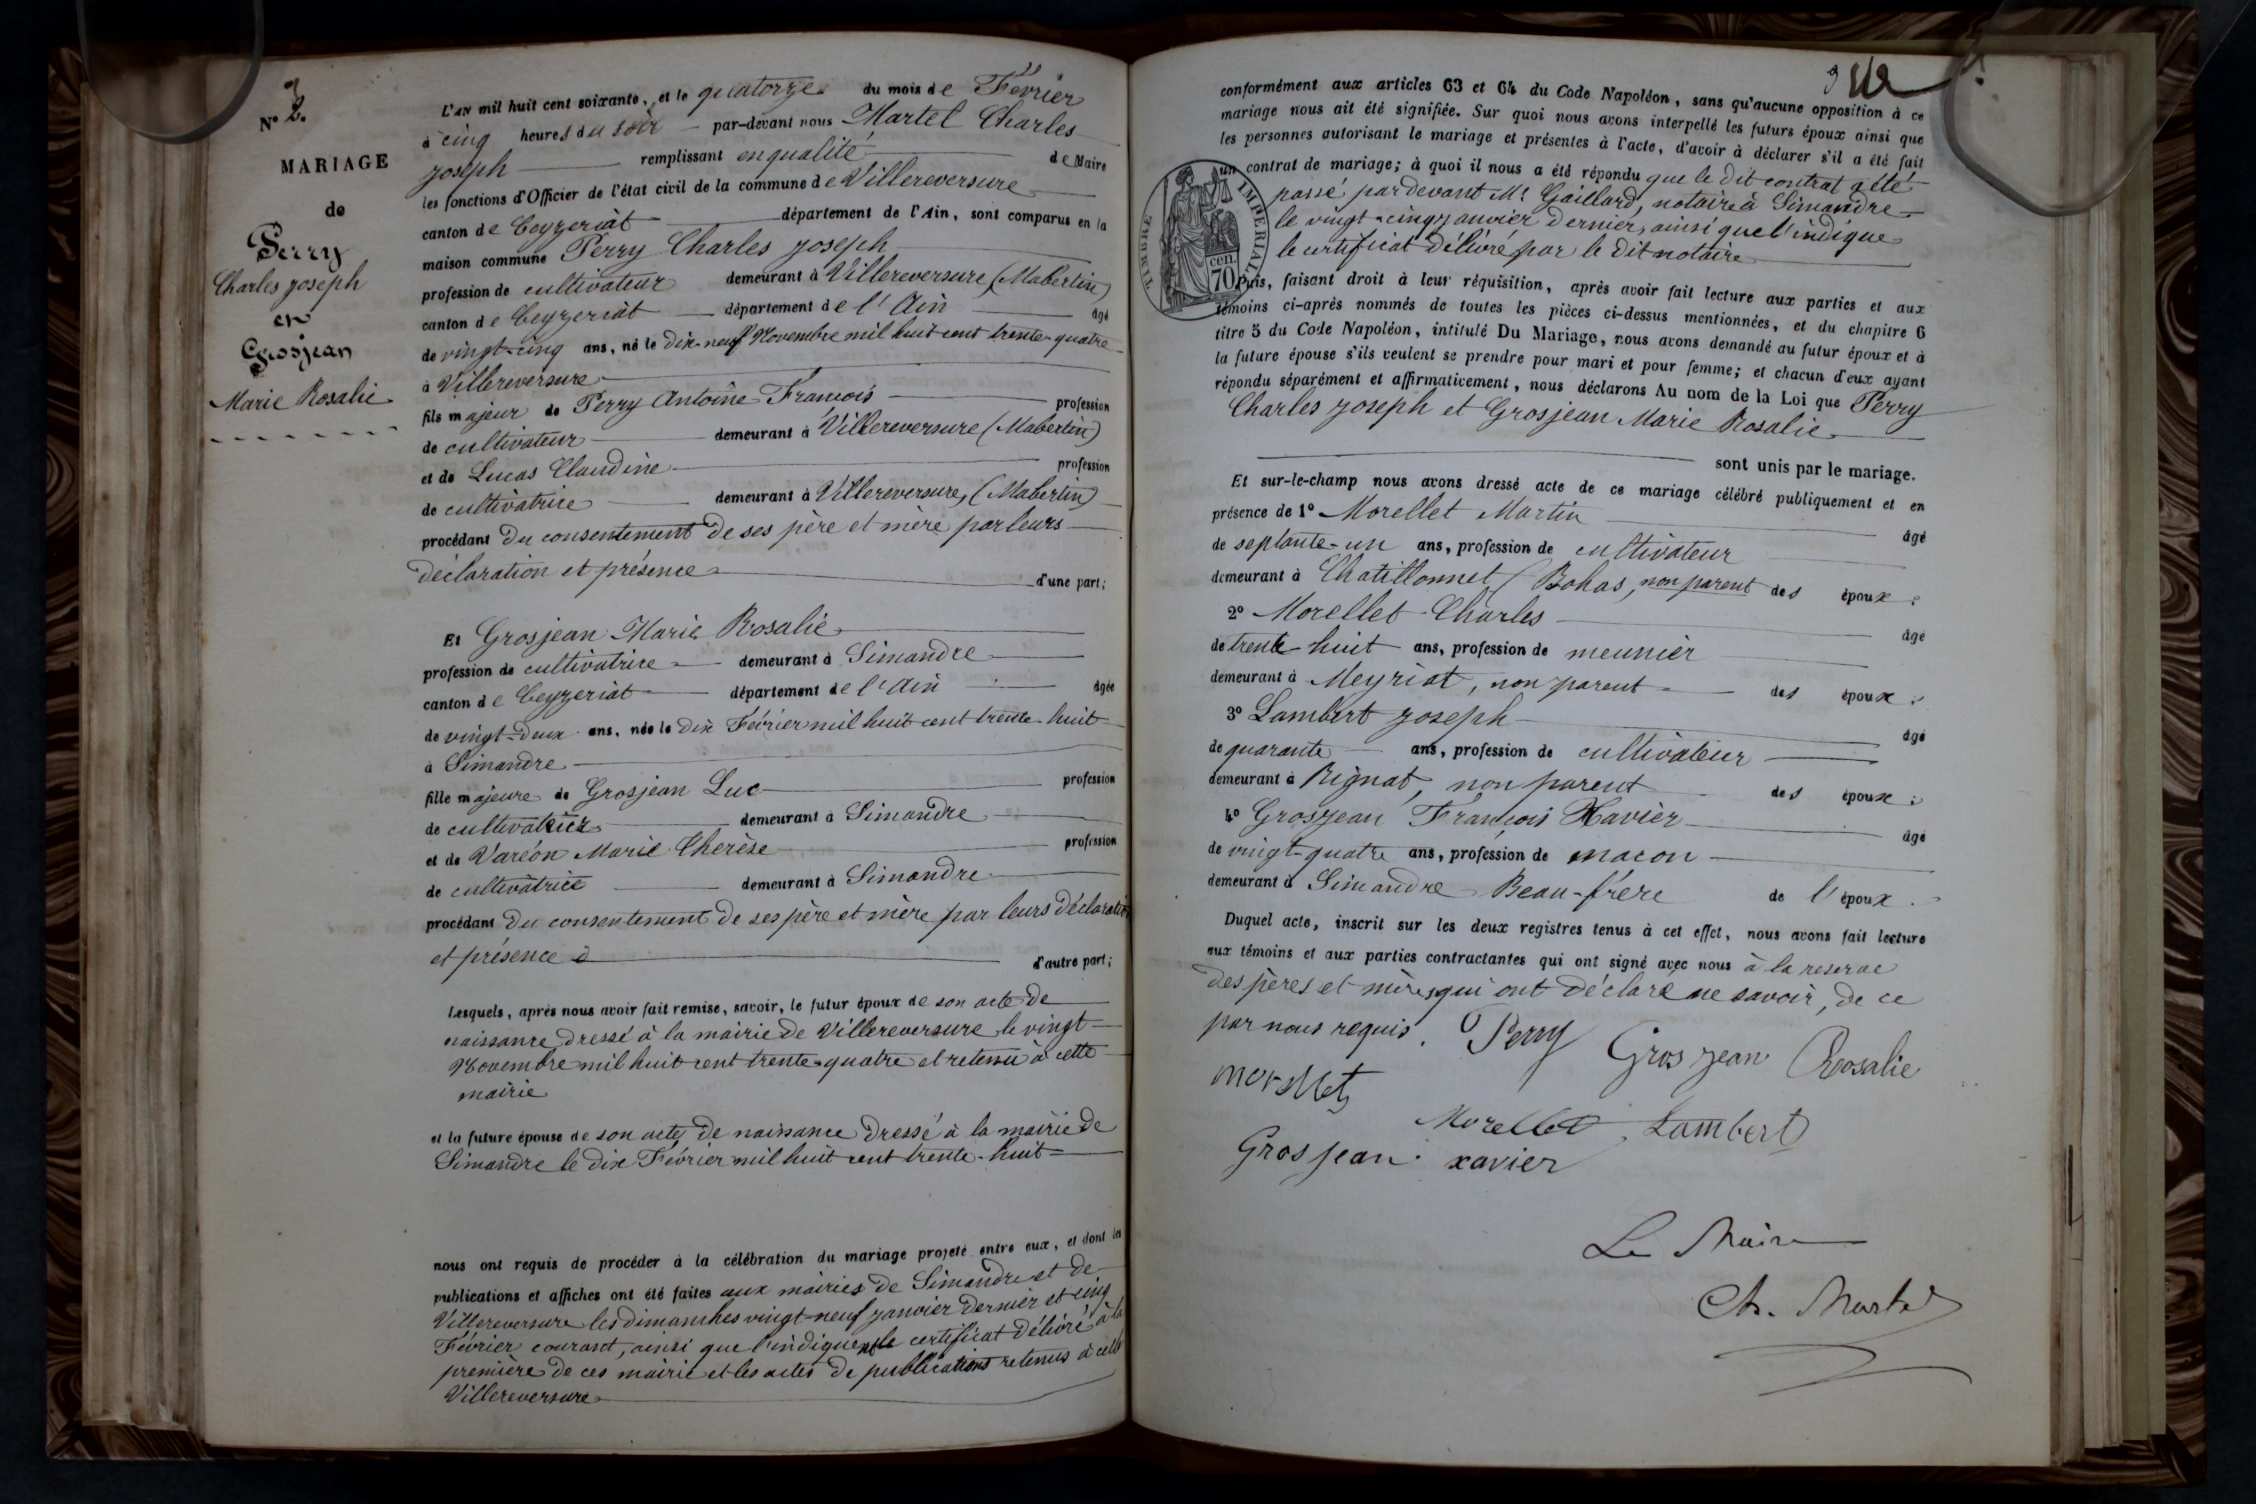 N° 2.
MARIAGE
de
Perry
Charles joseph
et
Grosjean
Marie Rosalie
L'AN mil huit cent soixante, et le quatorze du mois de Février
à cinq heures du soir par-devant nous Martel Charles
joseph remplissant en qualité de Maire
les fonctions d'Officier de l'état civil de la commune de Villereversure
canton de Ceyzeriat département de l'Ain, sont comparus en la
maison commune Perry Charles joseph
profession de cultivateur demeurant à Villereversure (Mabertin)
canton de Ceyzeriat département de l'Ain âgé
de vingt-cinq ans, né le dix-neuf Novembre mil huit cent trente-quatre
à Villereversure
fils majeur de Perry Antoine François profession
de cultivateur demeurant à Villereversure (Mabertin)
et de Lucas Claudine profession
de cultivatrice demeurant à Villereversure, (Mabertin)
procédant du consentement de ses père et mère par leurs
déclaration et présence d'une part;
Et Grosjean Marie Rosalie
profession de cultivatrice demeurant à Simandre
canton de Ceyzeriat département de l'Ain âgée
de vingt-deux ans, née le dix Février mil huit cent trente-huit
à Simandre
fille majeure de Grosjean Luc profession
de cultivateur demeurant à Simandre
et de Varéon Marie Thérèse profession
de cultivatrice demeurant à Simandre
procédant du consentement de ses père et mère par leurs déclaration
et présence d'autre part;
Lesquels, après nous avoir fait remise, savoir, le futur époux de son acte de
naissance dressé à la mairie de Villereversure le vingt
Novembre mil huit cent trente-quatre et retenu à cette
mairie
et la future épouse de son acte de naissance dressé à la mairie de
Simandre le dix Février mil huit cent trente-huit
nous ont requis de procéder à la célébration du mariage projeté entre eux, et dont les
publications et affiches ont été faites aux mairies de Simandre et de
Villereversure les dimanches vingt-neuf janvier dernier et cinq
Février courant, ainsi que l'indiquent le certificat délivré à la
première de ces mairie et les actes de publications retenus à celle
Villereversure
conformément aux articles 63 et 64 du Code Napoléon, sans qu'aucune opposition à ce
mariage nous ait été signifiée. Sur quoi nous avons interpellé les futurs époux ainsi que
les personnes autorisant le mariage et présentes à l'acte, d'avoir à déclarer s'il a été fait
un contrat de mariage; à quoi il nous a été répondu que le dit contrat a été
passé par devant Me Gaillard, notaire à Simandre
le vingt-cinq janvier dernier, ainsi que l'indique
le certificat délivré par le dit notaire
TIMBRE IMPERIAL
70 cen.
Puis, faisant droit à leur réquisition, après avoir fait lecture aux parties et aux
témoins ci-après nommés de toutes les pièces ci-dessus mentionnées, et du chapitre 6
titre 5 du Code Napoléon, intitulé Du Mariage, nous avons demandé au futur époux et à
la future épouse s'ils veulent se prendre pour mari et pour femme; et chacun d'eux ayant
répondu séparément et affirmativement, nous déclarons Au nom de la Loi que Perry
Charles joseph et Grosjean Marie Rosalie
sont unis par le mariage.
Et sur-le-champ nous avons dressé acte de ce mariage célébré publiquement et en
présence de 1° Morellet Martin âgé
de septante-un ans, profession de cultivateur
demeurant à Chatillonnet (Bohas, non parent des époux;
2° Morellet Charles âgé
de trente-huit ans, profession de meunier
demeurant à Meyriat, non parent des époux;
3° Lambert joseph âgé
de quarante ans, profession de cultivateur
demeurant à Rignat, non parent des époux;
4° Grosjean François Xavier âgé
de vingt-quatre ans, profession de maçon
demeurant à Simandre Beau-frère de l'époux.
Duquel acte, inscrit sur les deux registres tenus à cet effet, nous avons fait lecture
aux témoins et aux parties contractantes qui ont signé avec nous à la reserve
des pères et mères qui ont déclaré ne savoir, de ce
par nous requis. Perry Grosjean Rosalie
morellet
Morellet Lambert
Grosjean xavier
Le Maire
Ch. Martel